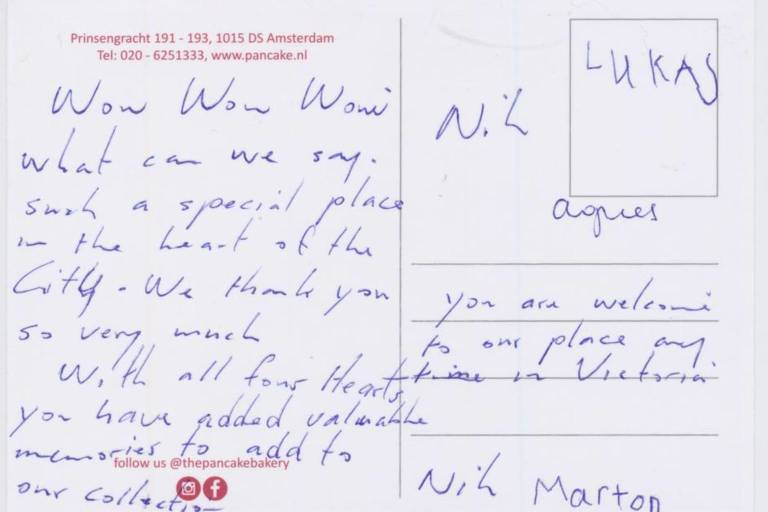 Prinsengracht 191 - 193, 1015 DS Amsterdam
Tel: 020 - 6251333, www.pancake.nl
Wow Wow Wow
what can we say.
such a special place
in the heart of the
City. We thank you
so very much
With all four Hearts
you have added valuable
memories to add to
follow us @thepancakebakery
our collection
LUKAS
Nik
agnes
you are welcome
to our place any
time in Victoria
Nik Marton